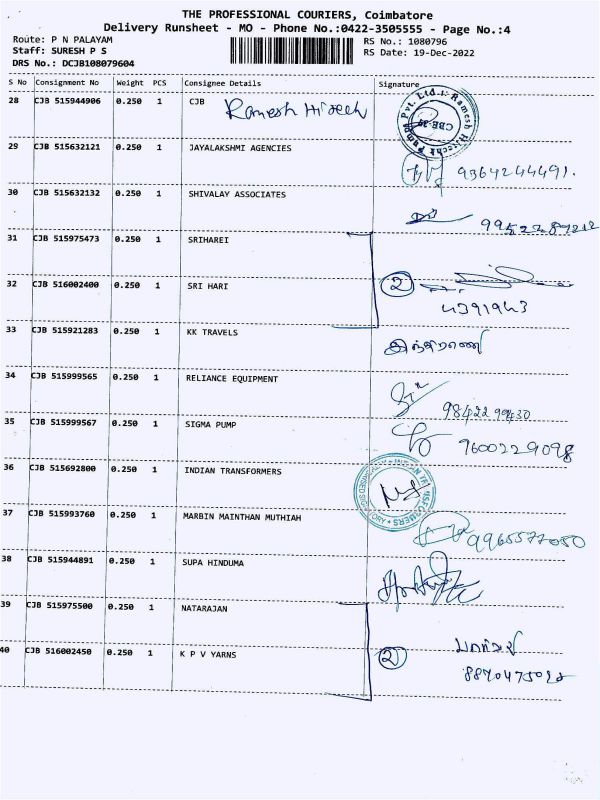 THE PROFESSIONAL COURIERS, Coimbatore
Delivery Runsheet - MO - Phone No.:0422-3505555 - Page No.:4
Route: P N PALAYAM
RS No.: 1080796
Staff: SURESH P S
RS Date: 19-Dec-2022
DRS No.: DCJB108079604
S No Consignment No Weight PCS Consignee Details Signature
28 CJB 515944906 0.250 1 CJB Ramesh Hitech
29 CJB 515632121 0.250 1 JAYALAKSHMI AGENCIES
9364244491.
30 CJB 515632132 0.250 1 SHIVALAY ASSOCIATES
31 CJB 515975473 0.250 1 SRIHAREI
32 CJB 516002400 0.250 1 SRI HARI 2
4391943
33 CJB 515921283 0.250 1 KK TRAVELS
34 CJB 515999565 0.250 1 RELIANCE EQUIPMENT
9842299430
35 CJB 515999567 0.250 1 SIGMA PUMP
9600229098
36 CJB 515692800 0.250 1 INDIAN TRANSFORMERS
37 CJB 515993760 0.250 1 MARBIN MAINTHAN MUTHIAH
9965577050
38 CJB 515944891 0.250 1 SUPA HINDUMA
39 CJB 515975500 0.250 1 NATARAJAN
40 CJB 516002450 0.250 1 K P V YARNS 2